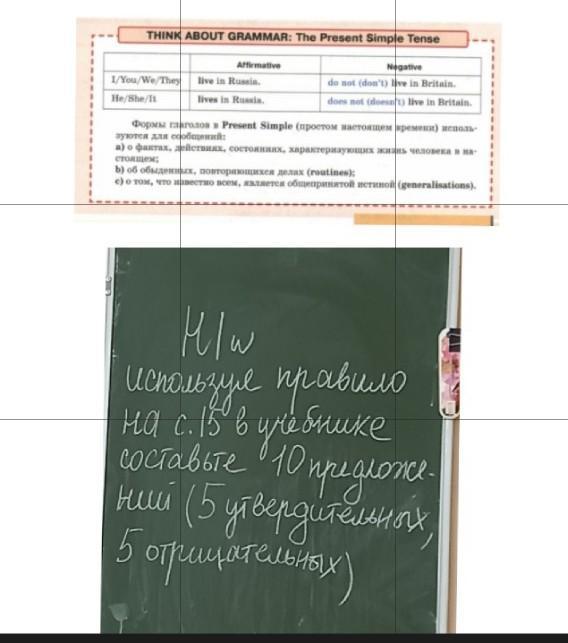 THINK ABOUT GRAMMAR: The Present Simple Tense
Affirmative Negative
I/You/We/They live in Russia. do not (don't) live in Britain.
He/She/It lives in Russia. does not (doesn't) live in Britain.
Формы глаголов в Present Simple (простом настоящем времени) исполь-
зуются для сообщений:
a) о фактах, действиях, состояниях, характеризующих жизнь человека в на-
стоящем;
b) об обыденных, повторяющихся делах (routines);
c) о том, что известно всем, является общепринятой истиной (generalisations).
H/w
используя правило
на с.15 в учебнике
составьте 10 предложе-
ний (5 утвердительных,
5 отрицательных)